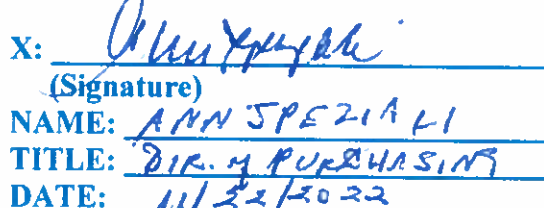 X: Ann Speziali
(Signature)
NAME: ANN SPEZIALI
TITLE: DIR. of PURCHASING
DATE: 11/22/2022